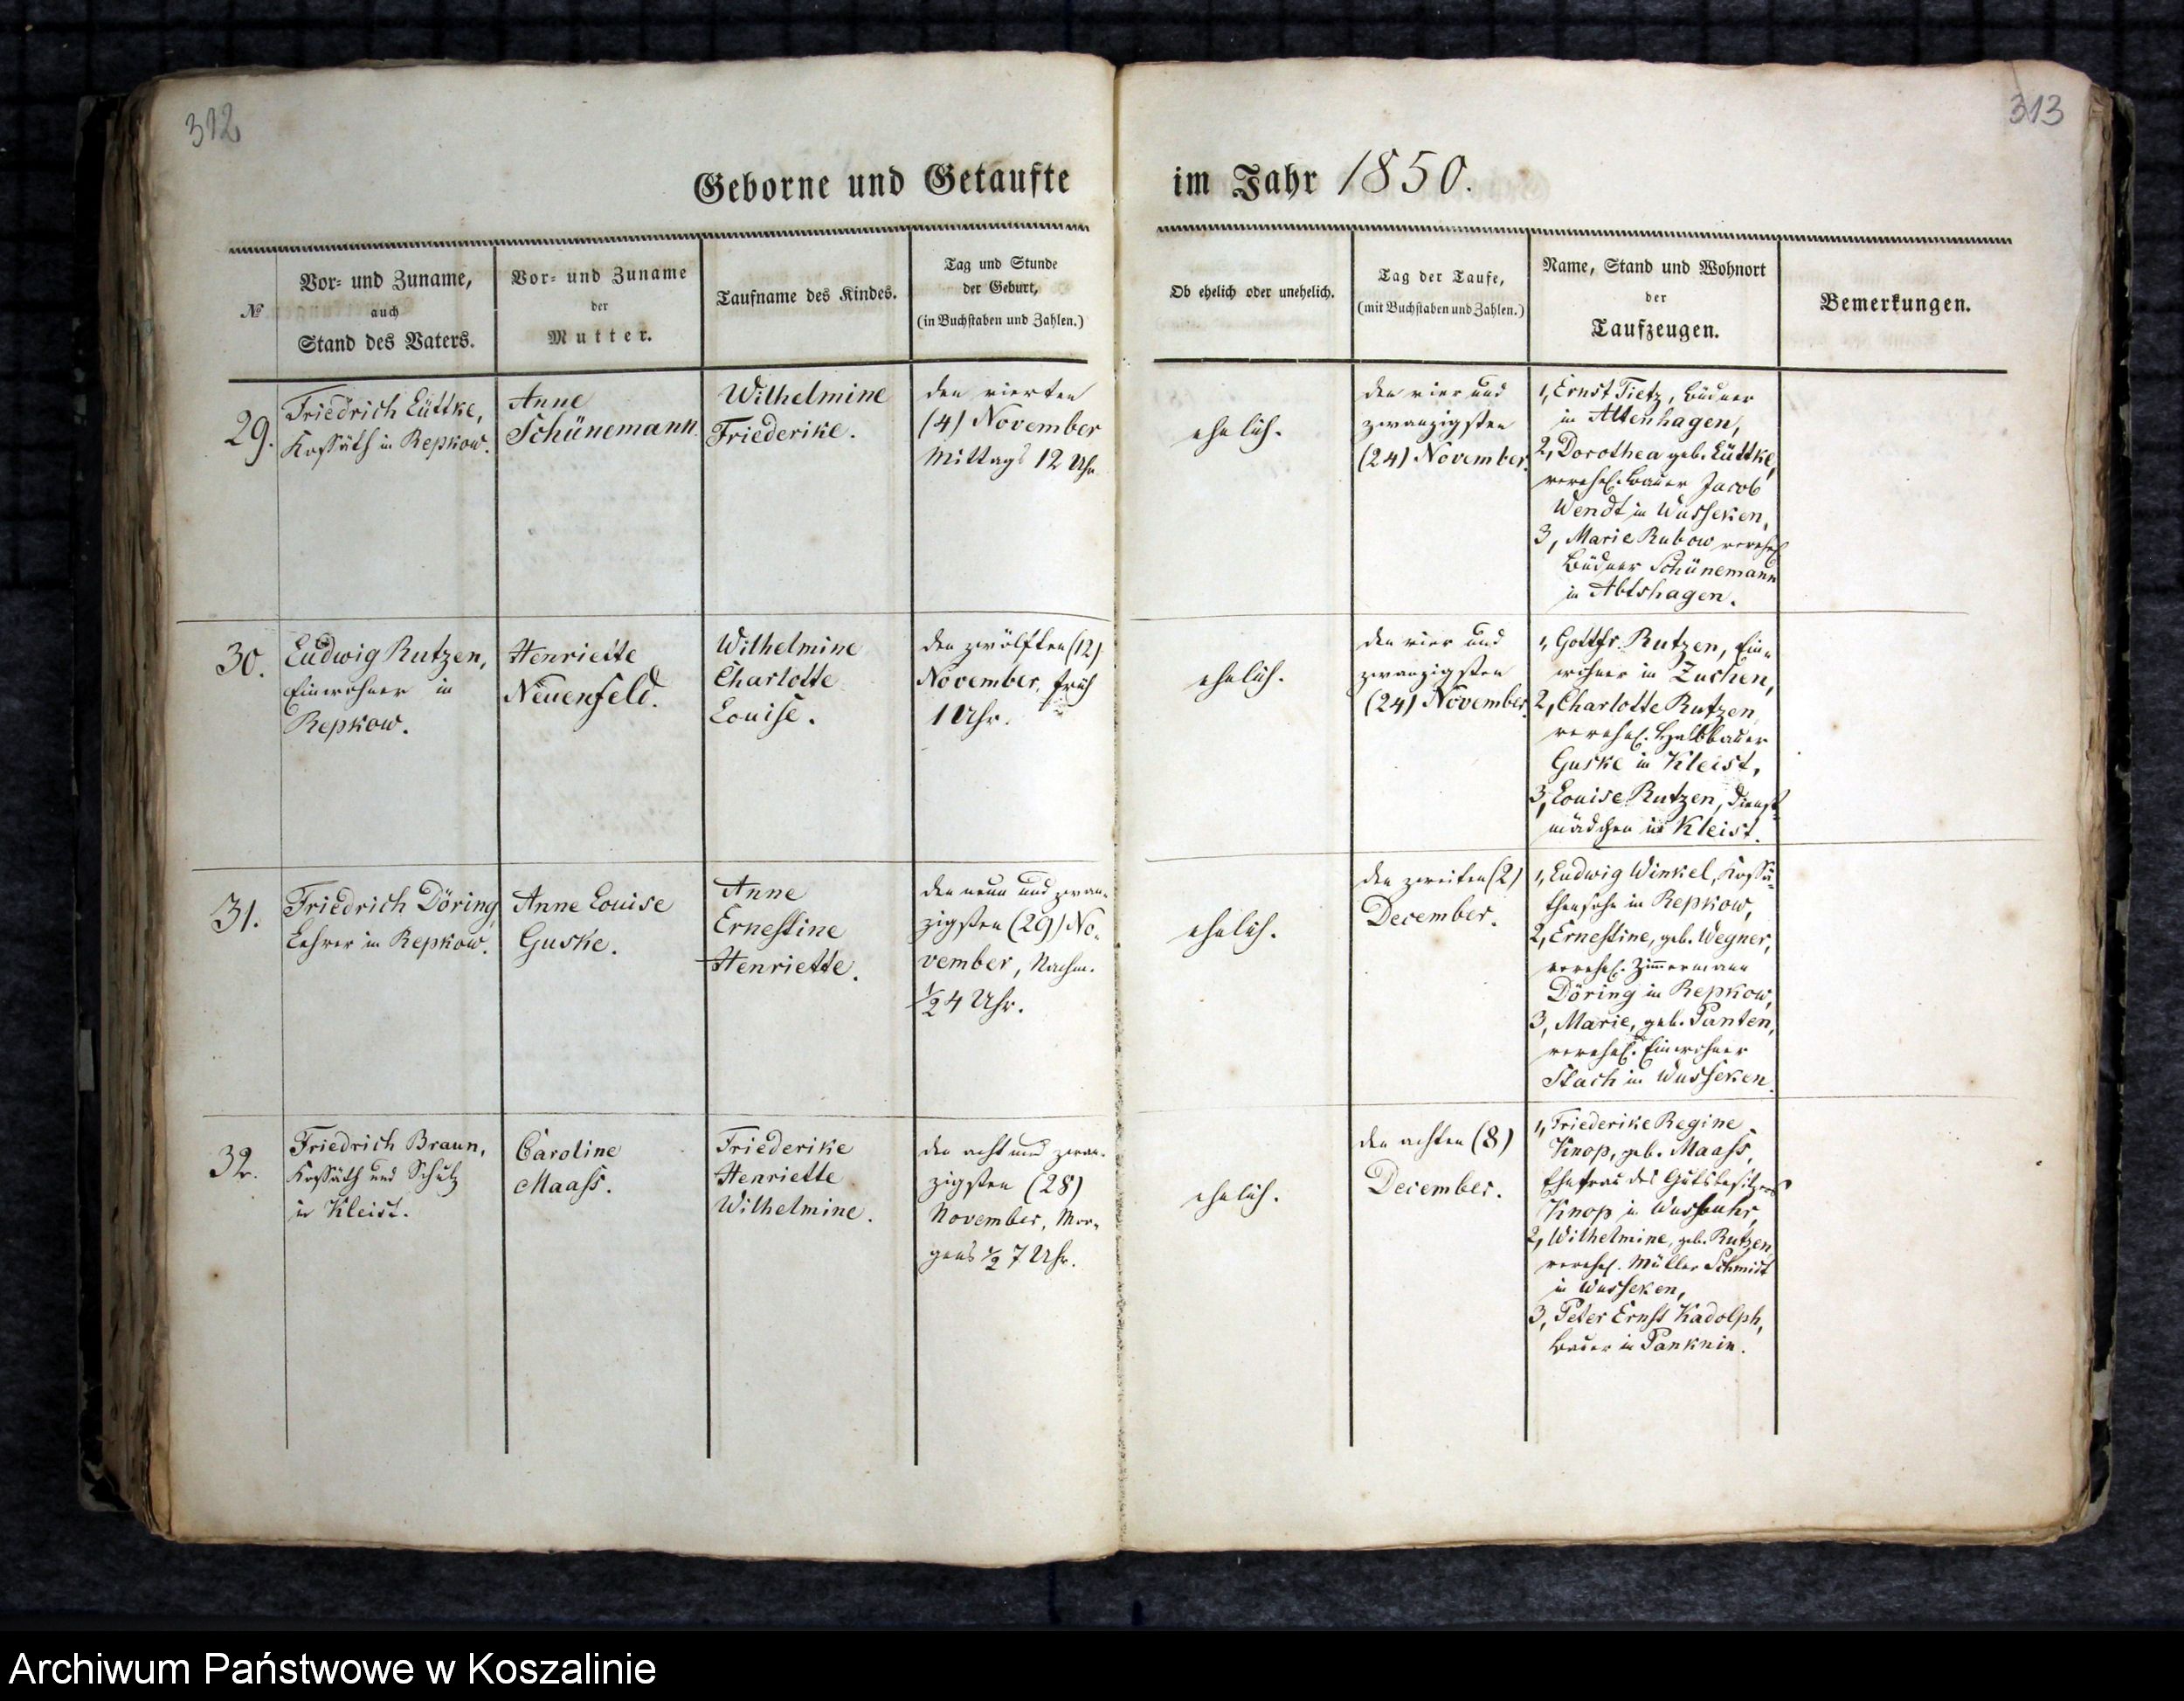 312
313
Geborne und Getaufte
im Jahr 1850.
№
Vor- und Zuname,
auch
Stand des Vaters.
Vor- und Zuname
der
Mutter.
Taufname des Kindes.
Tag und Stunde
der Geburt,
(in Buchstaben und Zahlen.)
Ob ehelich oder unehelich.
Tag der Taufe,
(mit Buchstaben und Zahlen.)
Name, Stand und Wohnort
der
Taufzeugen.
Bemerkungen.
29.
Friedrich Lüttke,
Kossäth in Repkow.
Anne
Schünemann.
Wilhelmine
Friederike.
den vierten
(4) November
Mittags 12 Uhr
ehelich.
den vier und
zwanzigsten
(24) November.
1, Ernst Tietz, Büdner
in Altenhagen,
2, Dorothea geb. Lüttke,
verehel. Bauer Jacob
Wendt in Wusseken,
3, Marie Rubow verehel.
Büdner Schünemann
in Abtshagen.
30.
Ludwig Rutzen,
Einwohner in
Repkow.
Henriette
Neuenfeld.
Wilhelmine
Charlotte
Louise.
den zwölften (12)
November, früh
1 Uhr.
ehelich.
den vier und
zwanzigsten
(24) November.
1, Gottfr. Rutzen, Ein-
wohner in Zuchen,
2, Charlotte Rutzen
verehel. Halbbauer
Guske in Kleist,
3, Louise Rutzen, Dienst-
mädchen in Kleist.
31.
Friedrich Döring,
Lehrer in Repkow.
Anne Louise
Guske.
Anne
Ernestine
Henriette.
den neun und zwan-
zigsten (29) No-
vember, Nachm.
½ 4 Uhr.
ehelich.
den zweiten (2)
December.
1, Ludwig Winkel, Kossä-
thensohn in Repkow,
2, Ernestine, geb. Wegner,
verehel. Zimmermann
Döring in Repkow,
3, Marie, geb. Panten,
verehel. Einwohner
Stach in Wusseken.
32.
Friedrich Braun,
Kossäth und Schulz
in Kleist.
Caroline
Maass.
Friederike
Henriette
Wilhelmine.
den acht und zwan-
zigsten (28)
November, Mor-
gens ½ 7 Uhr.
ehelich.
den achten (8)
December.
1, Friederike Regine
Knop, geb. Maass,
Ehefrau des Gutsbesitzers
Knop in
2, Wilhelmine, geb. Rutzen,
verehel. Müller Schmidt
in Wusseken,
3, Peter Ernst Kadolph,
Bauer in Panknin.
Archiwum Państwowe w Koszalinie